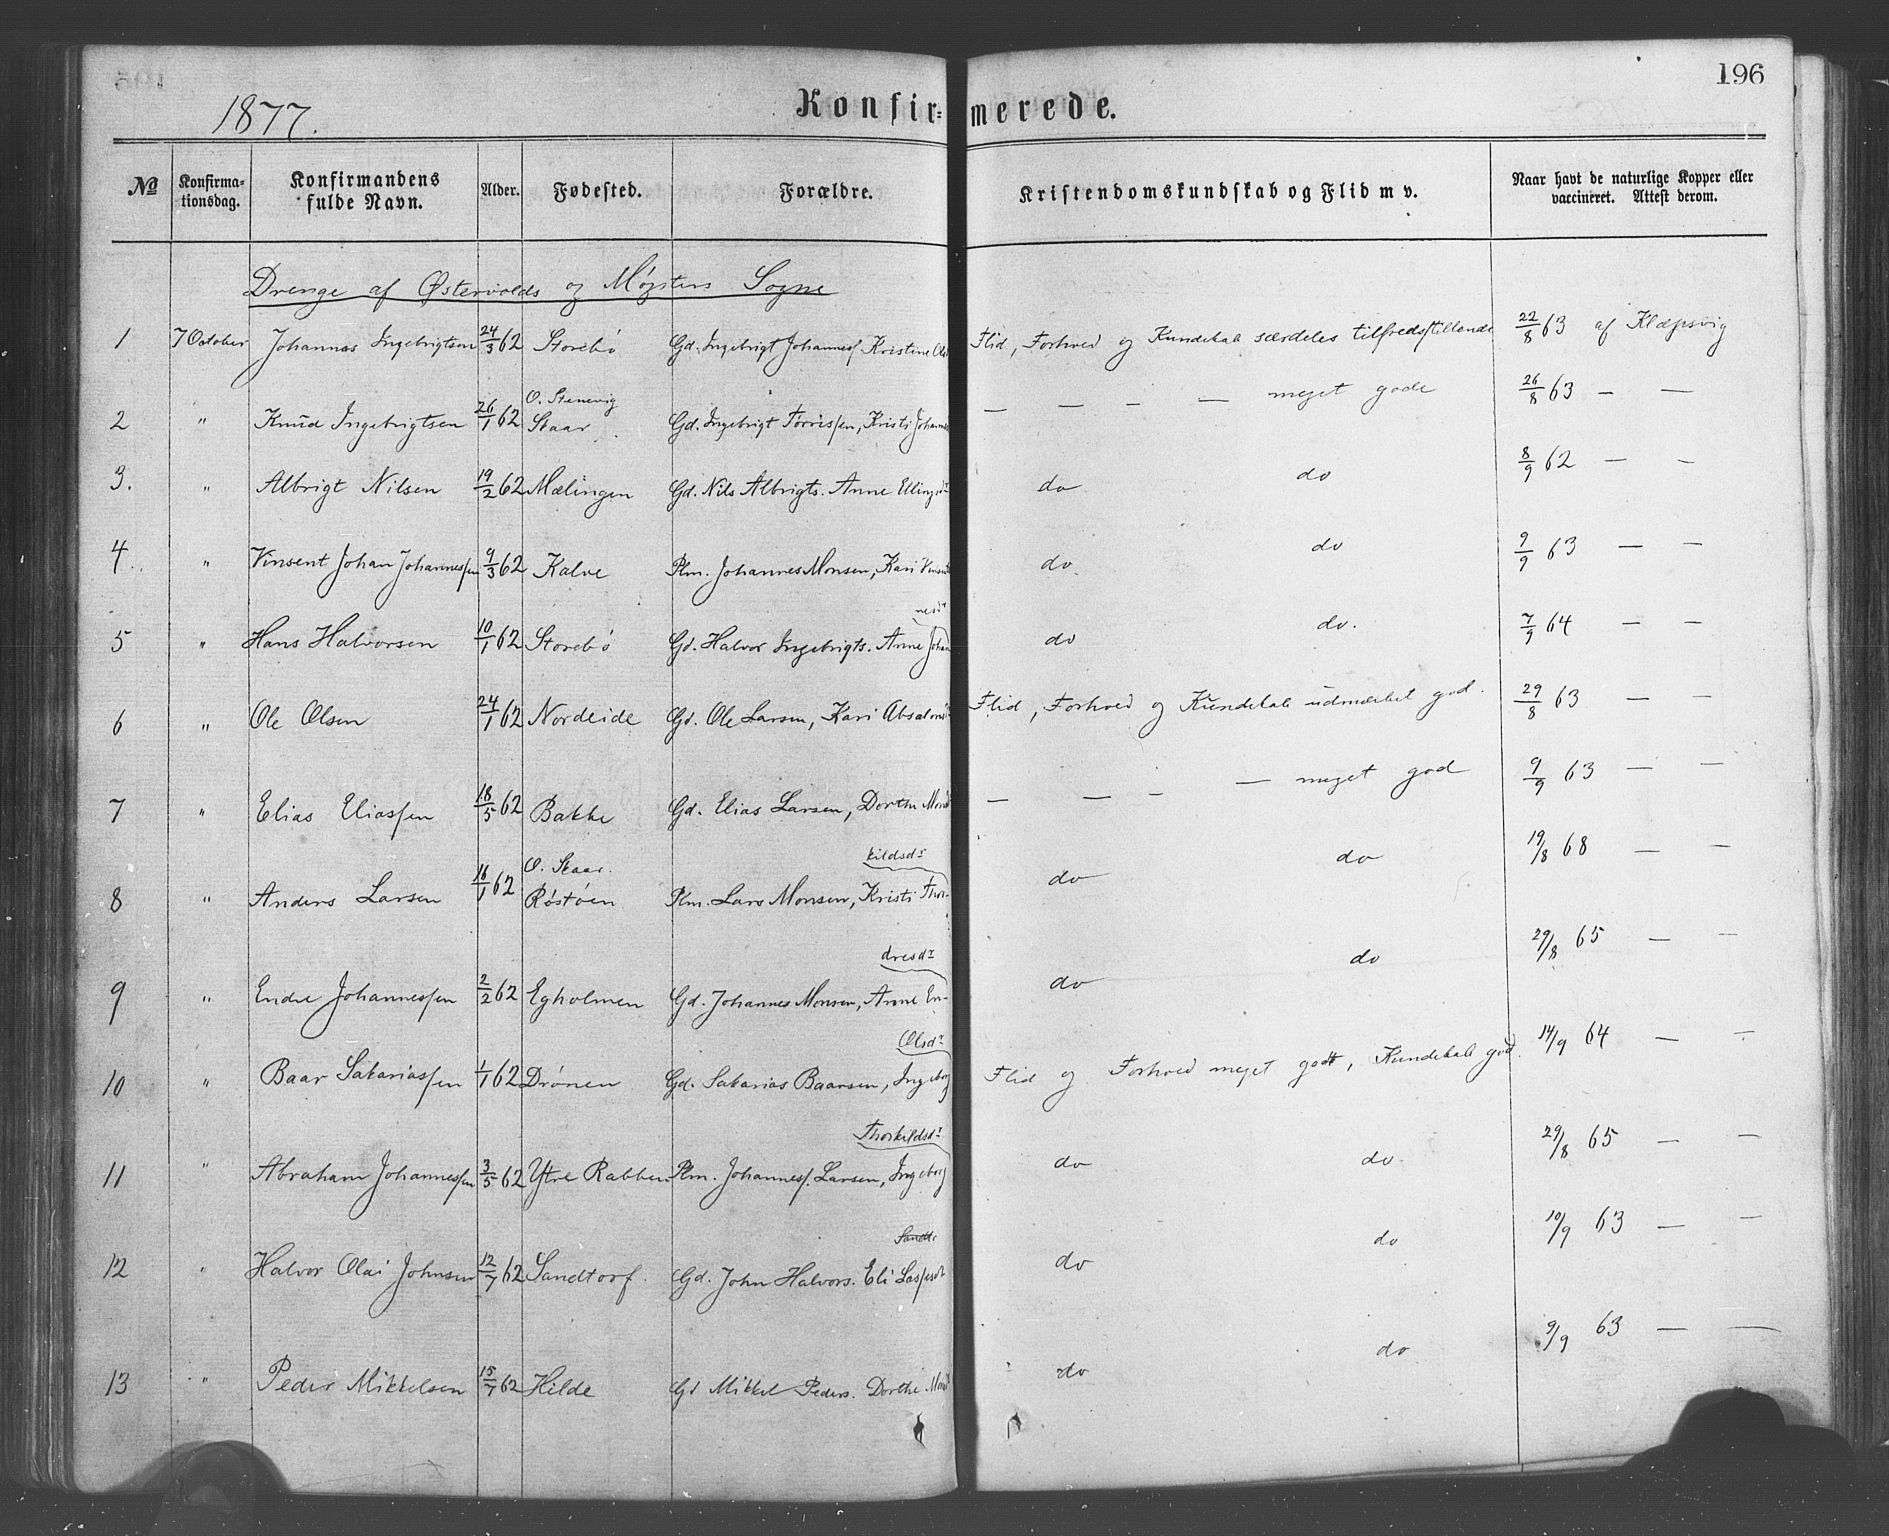 196
1877.
Konfirmerede.
No Konfirmationsdag. Konfirmandens fulde Navn. Alder. Fødested. Forældre. Kristendomskundskab og Flid m v. Naar havt de naturlige Kopper eller vaccineret. Attest derom.
Drenge af Østervolds og Møgsters Sogne
1 7 October Johannes Ingebrigtsen 24/3 62 Storebø Gd. Ingebrigt Johanness. Kristine Olsd Flid, Forhold og Kundskab særdeles tilfredsstillende 22/8 63 af Klæpsvig
2 " Knud Ingebrigtsen 26/1 62 O. Stenevig Skaar Gd. Ingebrigt Torrissen, Kristi Johannes — — — — meget gode 26/8 63 — —
3. " Albrigt Nilsen 19/2 62 Mælingen Gd. Nils Albrigts. Anne Ellingsdr do do 8/9 62 — —
4. " Vinsent Johan Johannessen 9/3 62 Kalve Plm. Johannes Monsen, Kari Vinsents do do 9/9 63 — —
5 " Hans Halvorsen 10/1 62 Storebø Gd. Halvor Ingebrigts. Anne Johannesdr do do. 7/9 64 — —
6 " Ole Olsen 24/1 62 Nordeide Gd. Ole Larsen, Kari Absalons Flid, Forhold og Kundskab udmærket god. 29/8 63 — —
7 " Elias Eliassen 18/5 62 Bakke Gd. Elias Larsen, Dorthe Monsd — — — — meget god 9/9 63 — —
8 " Anders Larsen 16/1 62 O. Skaar. Røstøen Plm. Lars Monsen, Kristi Thorkildsdr do do 19/8 68 — —
9 " Endre Johannessen 2/2 62 Egholmen Gd. Johannes Monsen, Anne Endresdr do do 29/8 65 — —
10 " Baar Sakariassen 1/1 62 Drönen Gd. Sakarias Baarsen, Ingeborg Olsdr Flid og Forhold meget godt, Kundskab god. 14/9 64 — —
11 " Abraham Johannessen 3/5 62 Ytre Rabben Plm. Johanness. Larsen, Ingeborg Thorkildsdr do do. 29/8 65 — —
12 " Halvor Olai Johnsen 12/7 62 Sandtorf. Gd. John Halvors. Eli Lassesdt do do 10/9 63 — —
13 " Peder Mikkelsen 15/7 62 Hilde Gd Mikkel Peders. Dorthe Monsd do do 9/9 63 — —